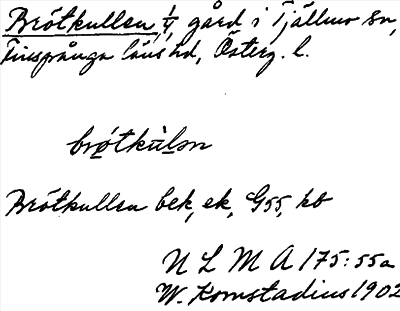 Brötkullen, 1/4, gård i Tjällmo sn,
Finspånga läns hd, Österg. l.
brǿtkùlən
Brötkullen bek, ek, G55, kb
N L M A 175:55a
W. Kornstadius 1902